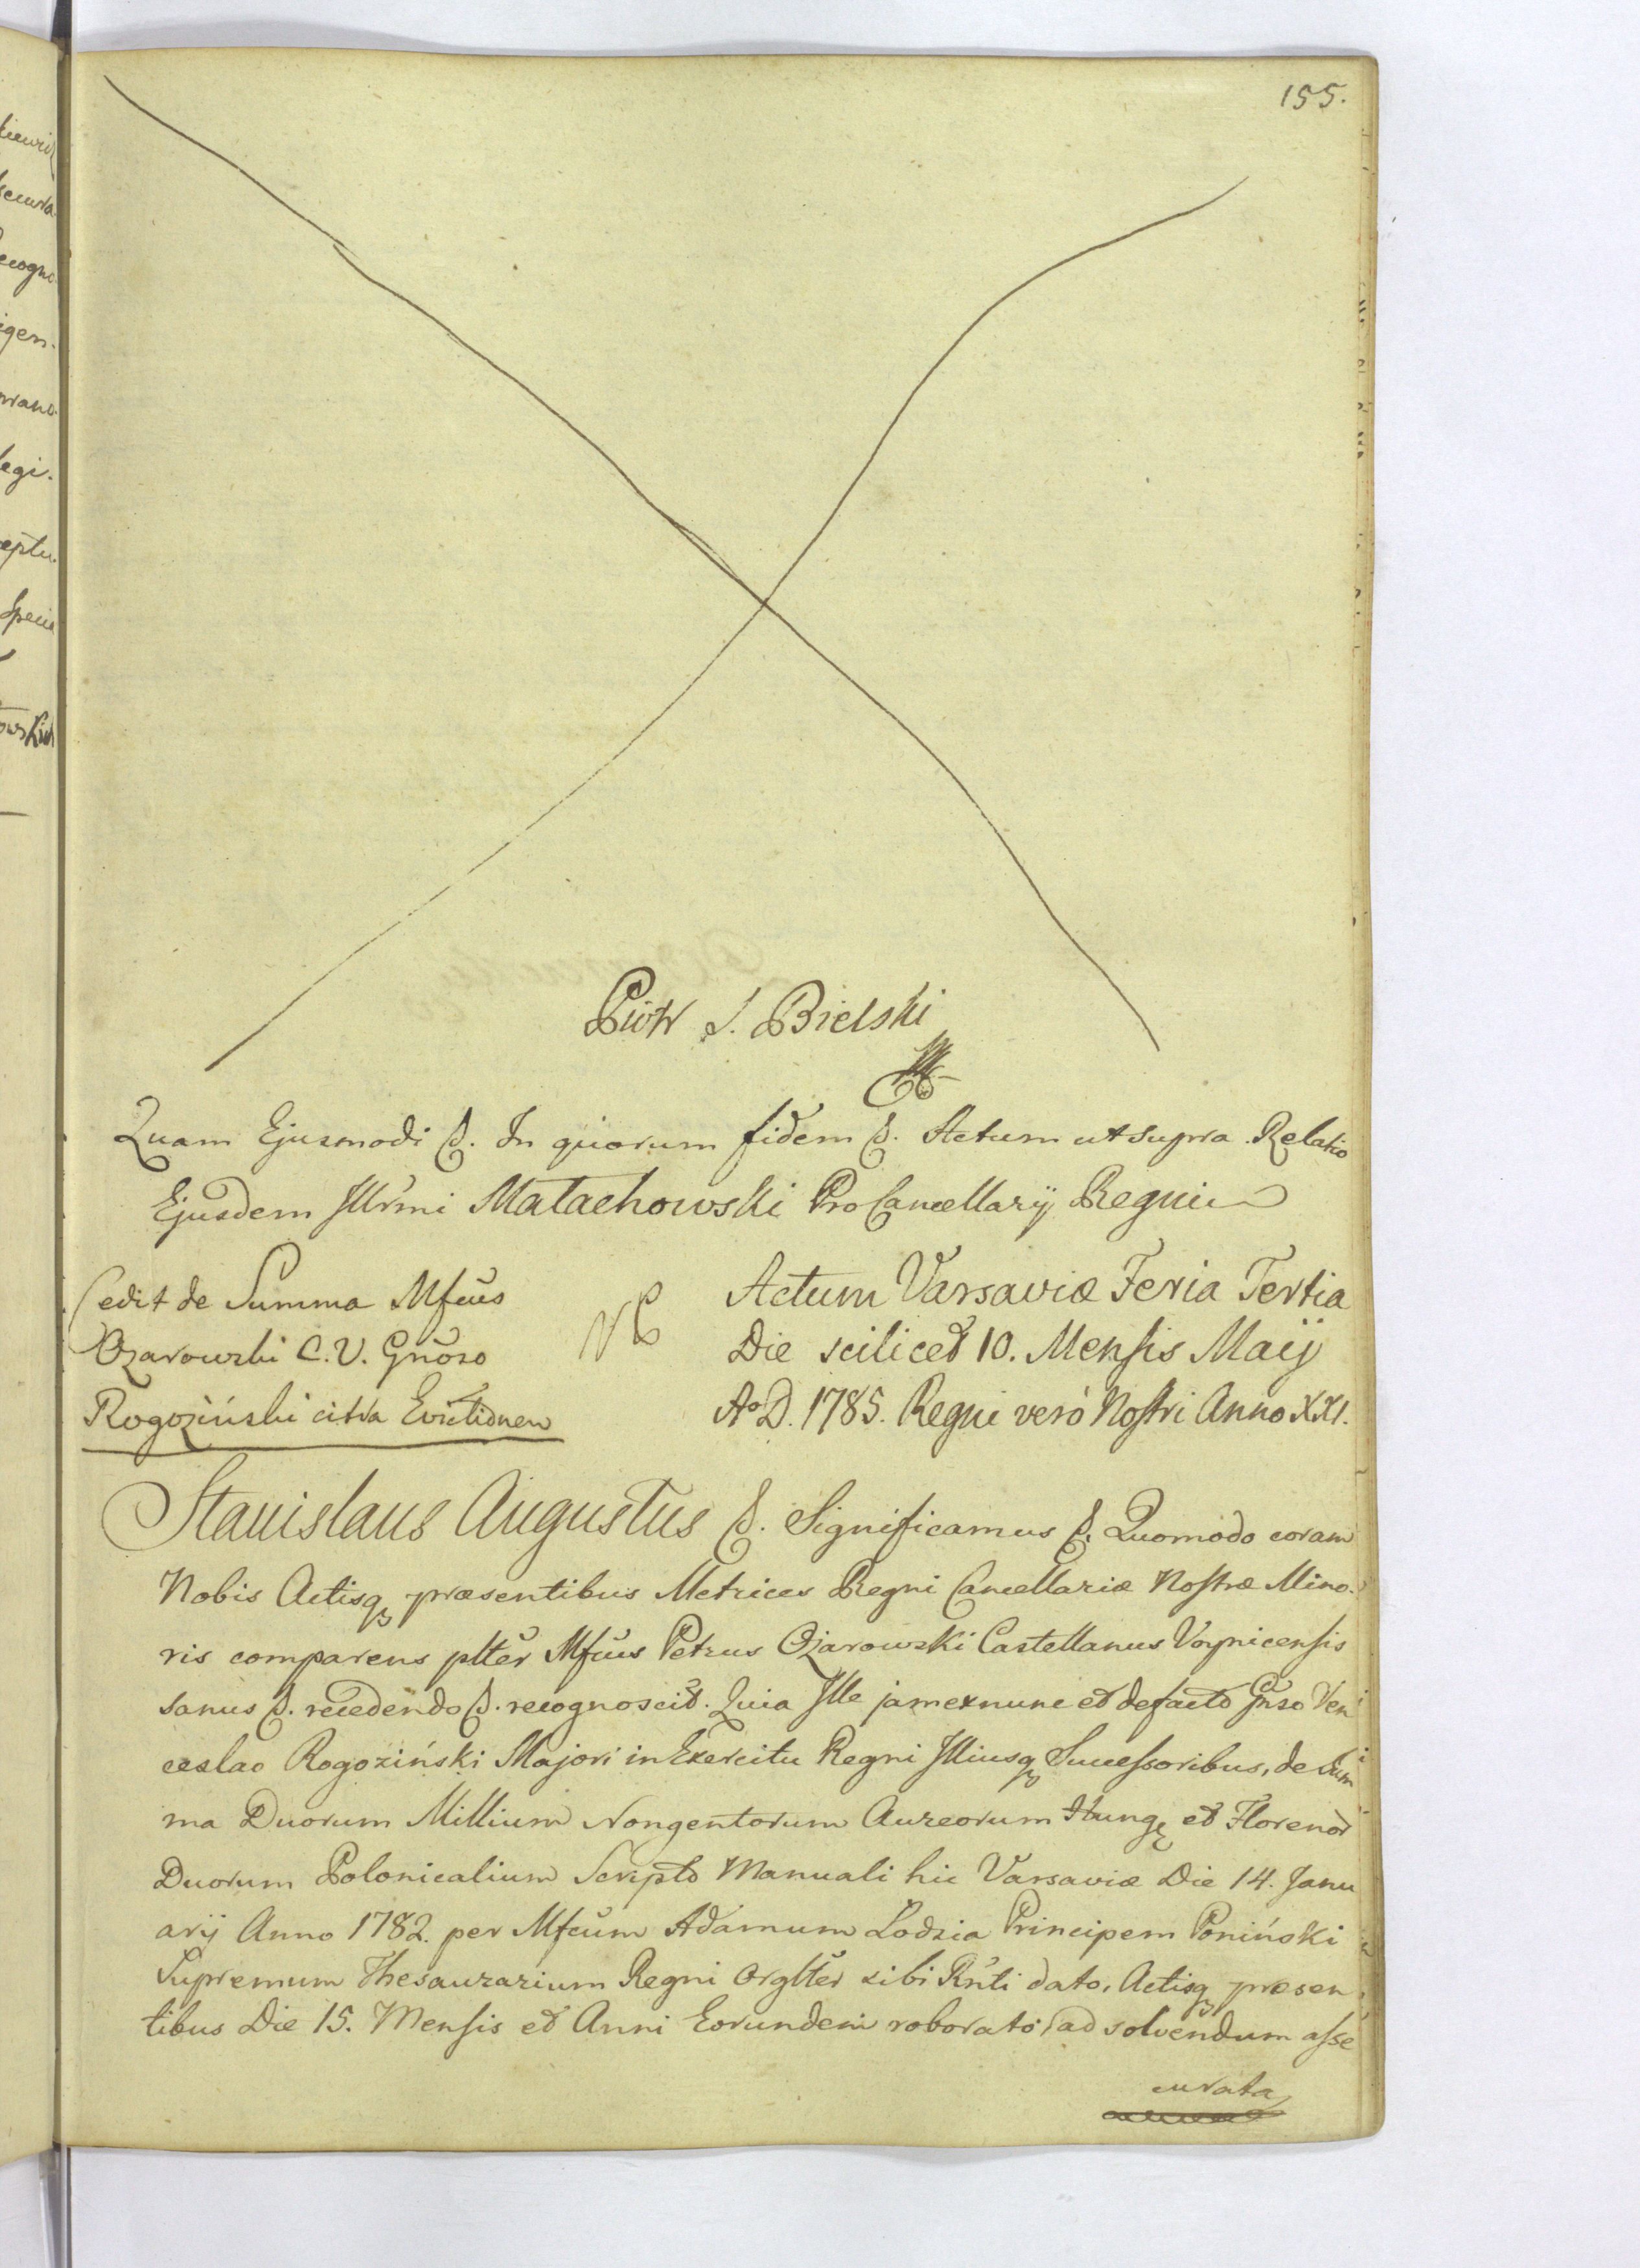 155.
Piotr S. Bielski
Quam Ejusmodi &. In quorum fidem &. Actum ut supra. Relatio
Ejusdem Illrmi Małachowski ProCancellarij Regni
Cedit de Summa Mfcus
Ożarowski C. V. Gnoso
Rogoziński citra Evictionem
Actum Varsaviæ Feria Tertia
Die scilicet 10. Mensis Maij
Ao D. 1785. Regni vero Nostri Anno XXI.
Stanislaus Augustus &. Significamus &. Quomodo coram
Nobis Actisq præsentibus Metrices Regni Cancellariæ Nostræ Mino-
ris comparens plter Mfcus Petrus Ożarowski Castellanus Voynicensis
sanus &. recedendo &. recognoscit. Quia Ille jam exnunc et defacto Gnso Ven
ceslao Rogoziński Majori in Exercitu Regni Illiusq Successoribus, de Sum
ma Duorum Millium Nongentorum Aureorum Hung et Florenor
Duorum Polonicalium Scripto Manuali hic Varsaviæ Die 14. Janu
arij Anno 1782. per Mfcum Adamum Lodzia Principem Poniński
Supremum Thesaurarium Regni Orglter sibi Rnti dato, Actisq præsen
tibus Die 15. Mensis et Anni Eorundem roborato, ad solvendum asse
curata